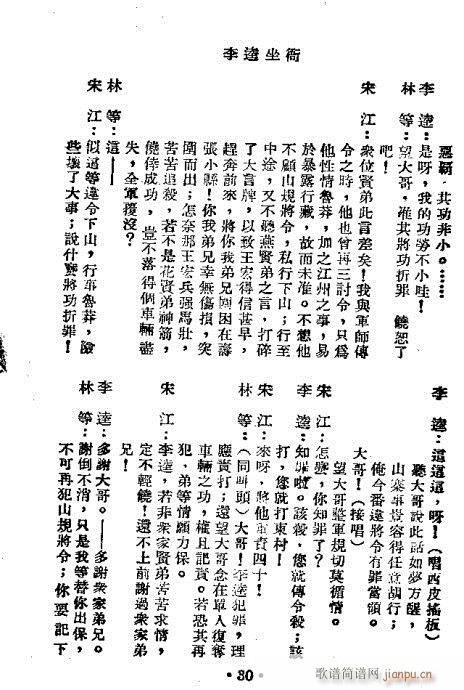 李逵坐衙
惡覇，其功非小。……
李　逵：是呀，我的功勞不小哇！
林　等：望大哥，准其將功折罪　饒恕了
吧！
宋　江：衆位賢弟此言差矣！我與軍師傳
令之時，他也曾再三討令，只爲
他性情魯莽，加之江州之事，易
於暴露行藏，故而未准。不想他
不顧山規將令，私行下山；行至
中途，又不聽燕賢弟之言，打碎
了大言牌，以致王宏得信甚早，
趕奔前來，將你我弟兄圍困在壽
張小縣！你我弟兄幸無傷損，突
圍而出；怎奈那王宏兵强馬壯，
苦苦追殺，若不是花賢弟神箭，
僥倖成功，豈不落得個車輛盡
失，全軍覆沒？
林　等：這——
宋　江：似這等違令下山，行事魯莽，險
些壞了大事；說什麽將功折罪！
李　逵：這這這，呀！（唱西皮搖板）
聽大哥說此話如夢方醒，
山寨事豈容得任意胡行；
俺今番違將令有罪當領。
大哥！（接唱）
望大哥整軍規切莫循情。
宋　江：怎麽，你知罪了？
李　逵：知罪啦。該殺，您就傳令殺；該
打，您就打東村！
宋　江：來呀，將他重責四十！
林　等：（同叫頭）大哥！李逵犯罪，理
應責打；還望大哥念在單人復奪
車輛之功，權且記責。若恐其再
犯，弟等情願力保。
宋　江：李逵，若非衆家賢弟苦苦求情，
定不輕饒！還不上前謝過衆家弟
兄！
李　逵：多謝大哥。——多謝衆家弟兄。
林　等：謝倒不消，只是我等替你出保，
不可再犯山規將令；你要記下
·30·
歌谱简谱网
jianpu.cn